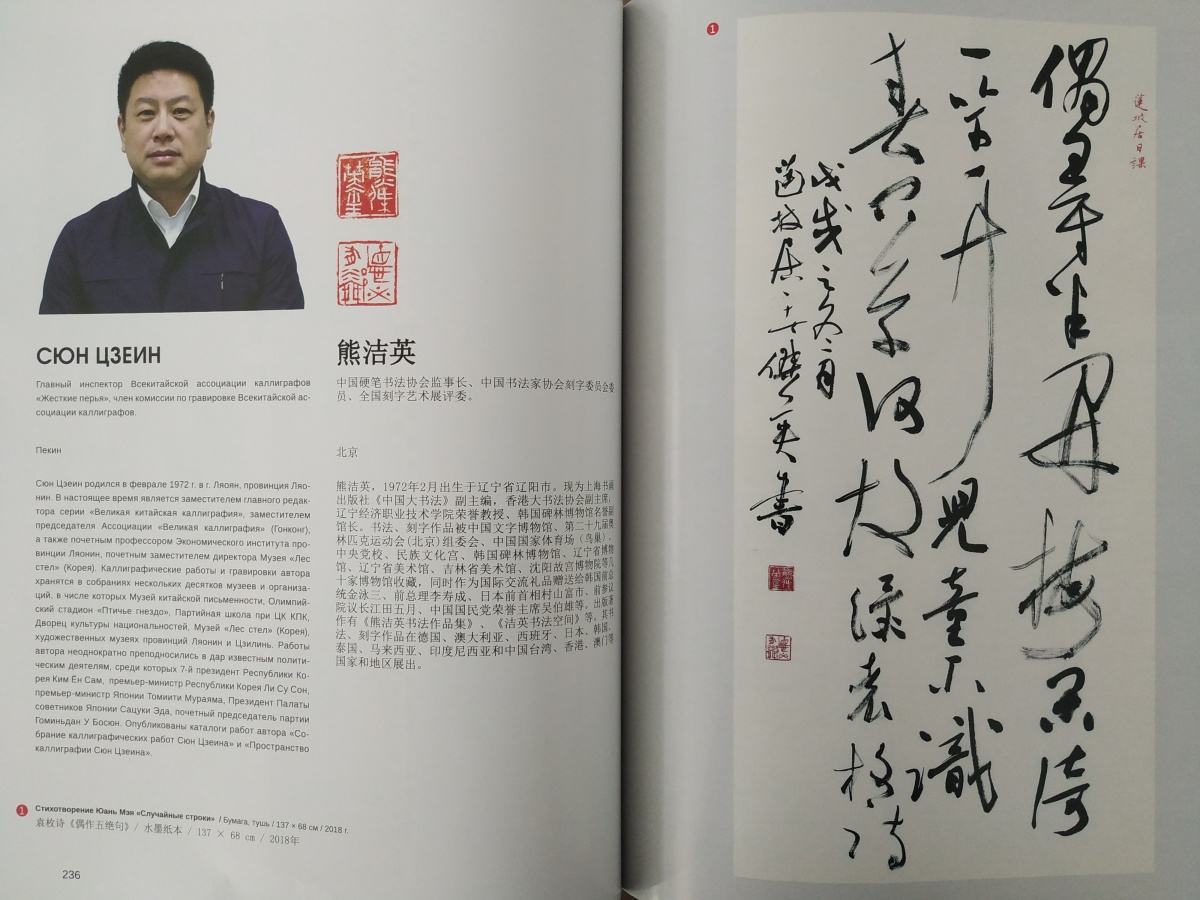 СЮН ЦЗЕИН
Главный инспектор Всекитайской ассоциации каллиграфов
«Жесткие перья», член комиссии по гравировке Всекитайской ас-
социации каллиграфов.
Пекин
Сюн Цзеин родился в феврале 1972 г. в г. Ляоян, провинция Ляо-
нин. В настоящее время является заместителем главного редак-
тора серии «Великая китайская каллиграфия», заместителем
председателя Ассоциации «Великая каллиграфия» (Гонконг),
а также почетным профессором Экономического института про-
винции Ляонин, почетным заместителем директора Музея «Лес
стел» (Корея). Каллиграфические работы и гравировки автора
хранятся в собраниях нескольких десятков музеев и организа-
ций, в числе которых Музей китайской письменности, Олимпий-
ский стадион «Птичье гнездо», Партийная школа при ЦК КПК,
Дворец культуры национальностей, Музей «Лес стел» (Корея),
художественных музеях провинций Ляонин и Цзилинь. Работы
автора неоднократно преподносились в дар известным полити-
ческим деятелям, среди которых 7-й президент Республики Ко-
рея Ким Ён Сам, премьер-министр Республики Корея Ли Су Сон,
премьер-министр Японии Томиити Мураяма, Президент Палаты
советников Японии Сацуки Эда, почетный председатель партии
Гоминьдан У Босюн. Опубликованы каталоги работ автора «Со-
брание каллиграфических работ Сюн Цзеина» и «Пространство
каллиграфии Сюн Цзеина».
熊洁英
中国硬笔书法协会监事长、中国书法家协会刻字委员会委
员、全国刻字艺术展评委。
北京
熊洁英，1972年2月出生于辽宁省辽阳市。现为上海书画
出版社《中国大书法》副主编，香港大书法协会副主席，
辽宁经济职业技术学院荣誉教授、韩国碑林博物馆名誉副
馆长。书法、刻字作品被中国文字博物馆、第二十九届奥
林匹克运动会(北京)组委会、中国国家体育场(鸟巢)、
中央党校、民族文化宫、韩国碑林博物馆、辽宁省博物
馆、辽宁省美术馆、吉林省美术馆、沈阳故宫博物院等几
十家博物馆收藏，同时作为国际交流礼品赠送给韩国前总
统金泳三、前总理李寿成、日本前首相村山富市、前参议
院议长江田五月、中国国民党荣誉主席吴伯雄等。出版著
作有《熊洁英书法作品集》、《洁英书法空间》等。其书
法、刻字作品在德国、澳大利亚、西班牙、日本、韩国、
泰国、马来西亚、印度尼西亚和中国台湾、香港、澳门等
国家和地区展出。
1 Стихотворение Юань Мэя «Случайные строки» / Бумага, тушь / 137 × 68 см / 2018 г.
袁枚诗《偶作五绝句》/ 水墨纸本 / 137 × 68 cm / 2018年
236
1
偶尋半開梅閑倚
一竿竹兒童不識
春問草何故綠袁枚詩